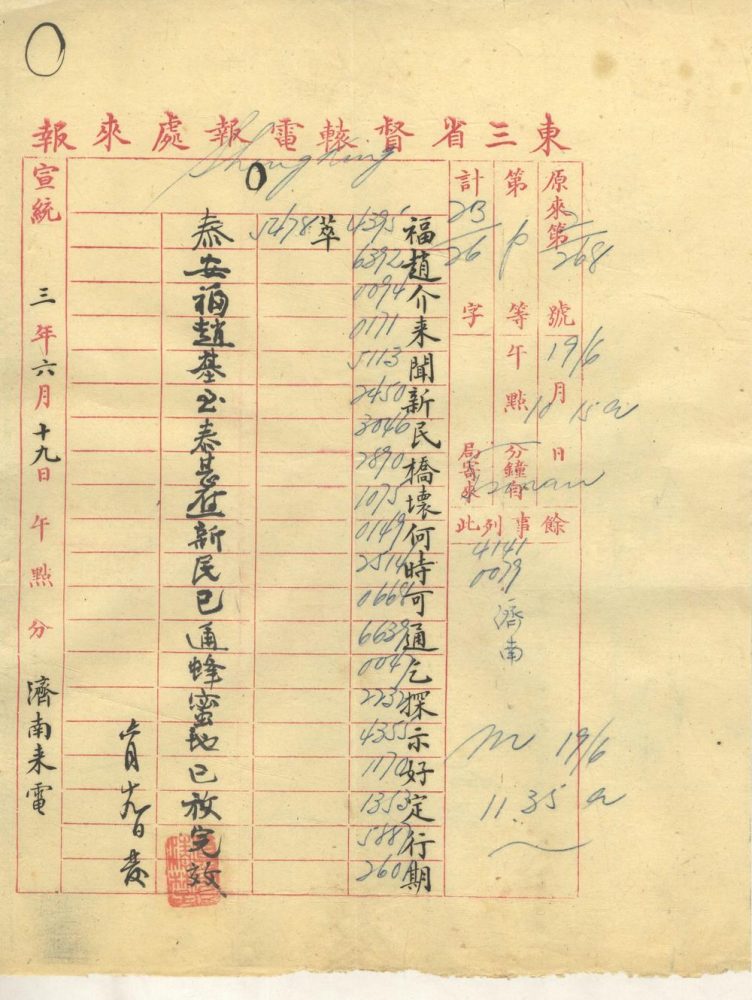 東三省督轅電報處來報
Shengking
原來第 2/268 號
第 P 等
計 23/26 字
19/6 月 日
午 點 10 15 a
分鐘自
局寄來
餘事列此
4141
0079
濟南
m 19/6
11.35 a
4395 福
6392 趙
0094 介
0171 来
5113 聞
2450 新
3046 民
2890 橋
1075 壞
0149 何
2514 時
0668 可
6639 通
0047 乞
2232 探
4355 示
1170 好
1353 定
5887 行
2601 期
5478 萃
泰安福趙基 泰甚 新民已通蜂蜜地已放完效
六月十九日發
宣統三年六月十九日 午 點 分 濟南来電